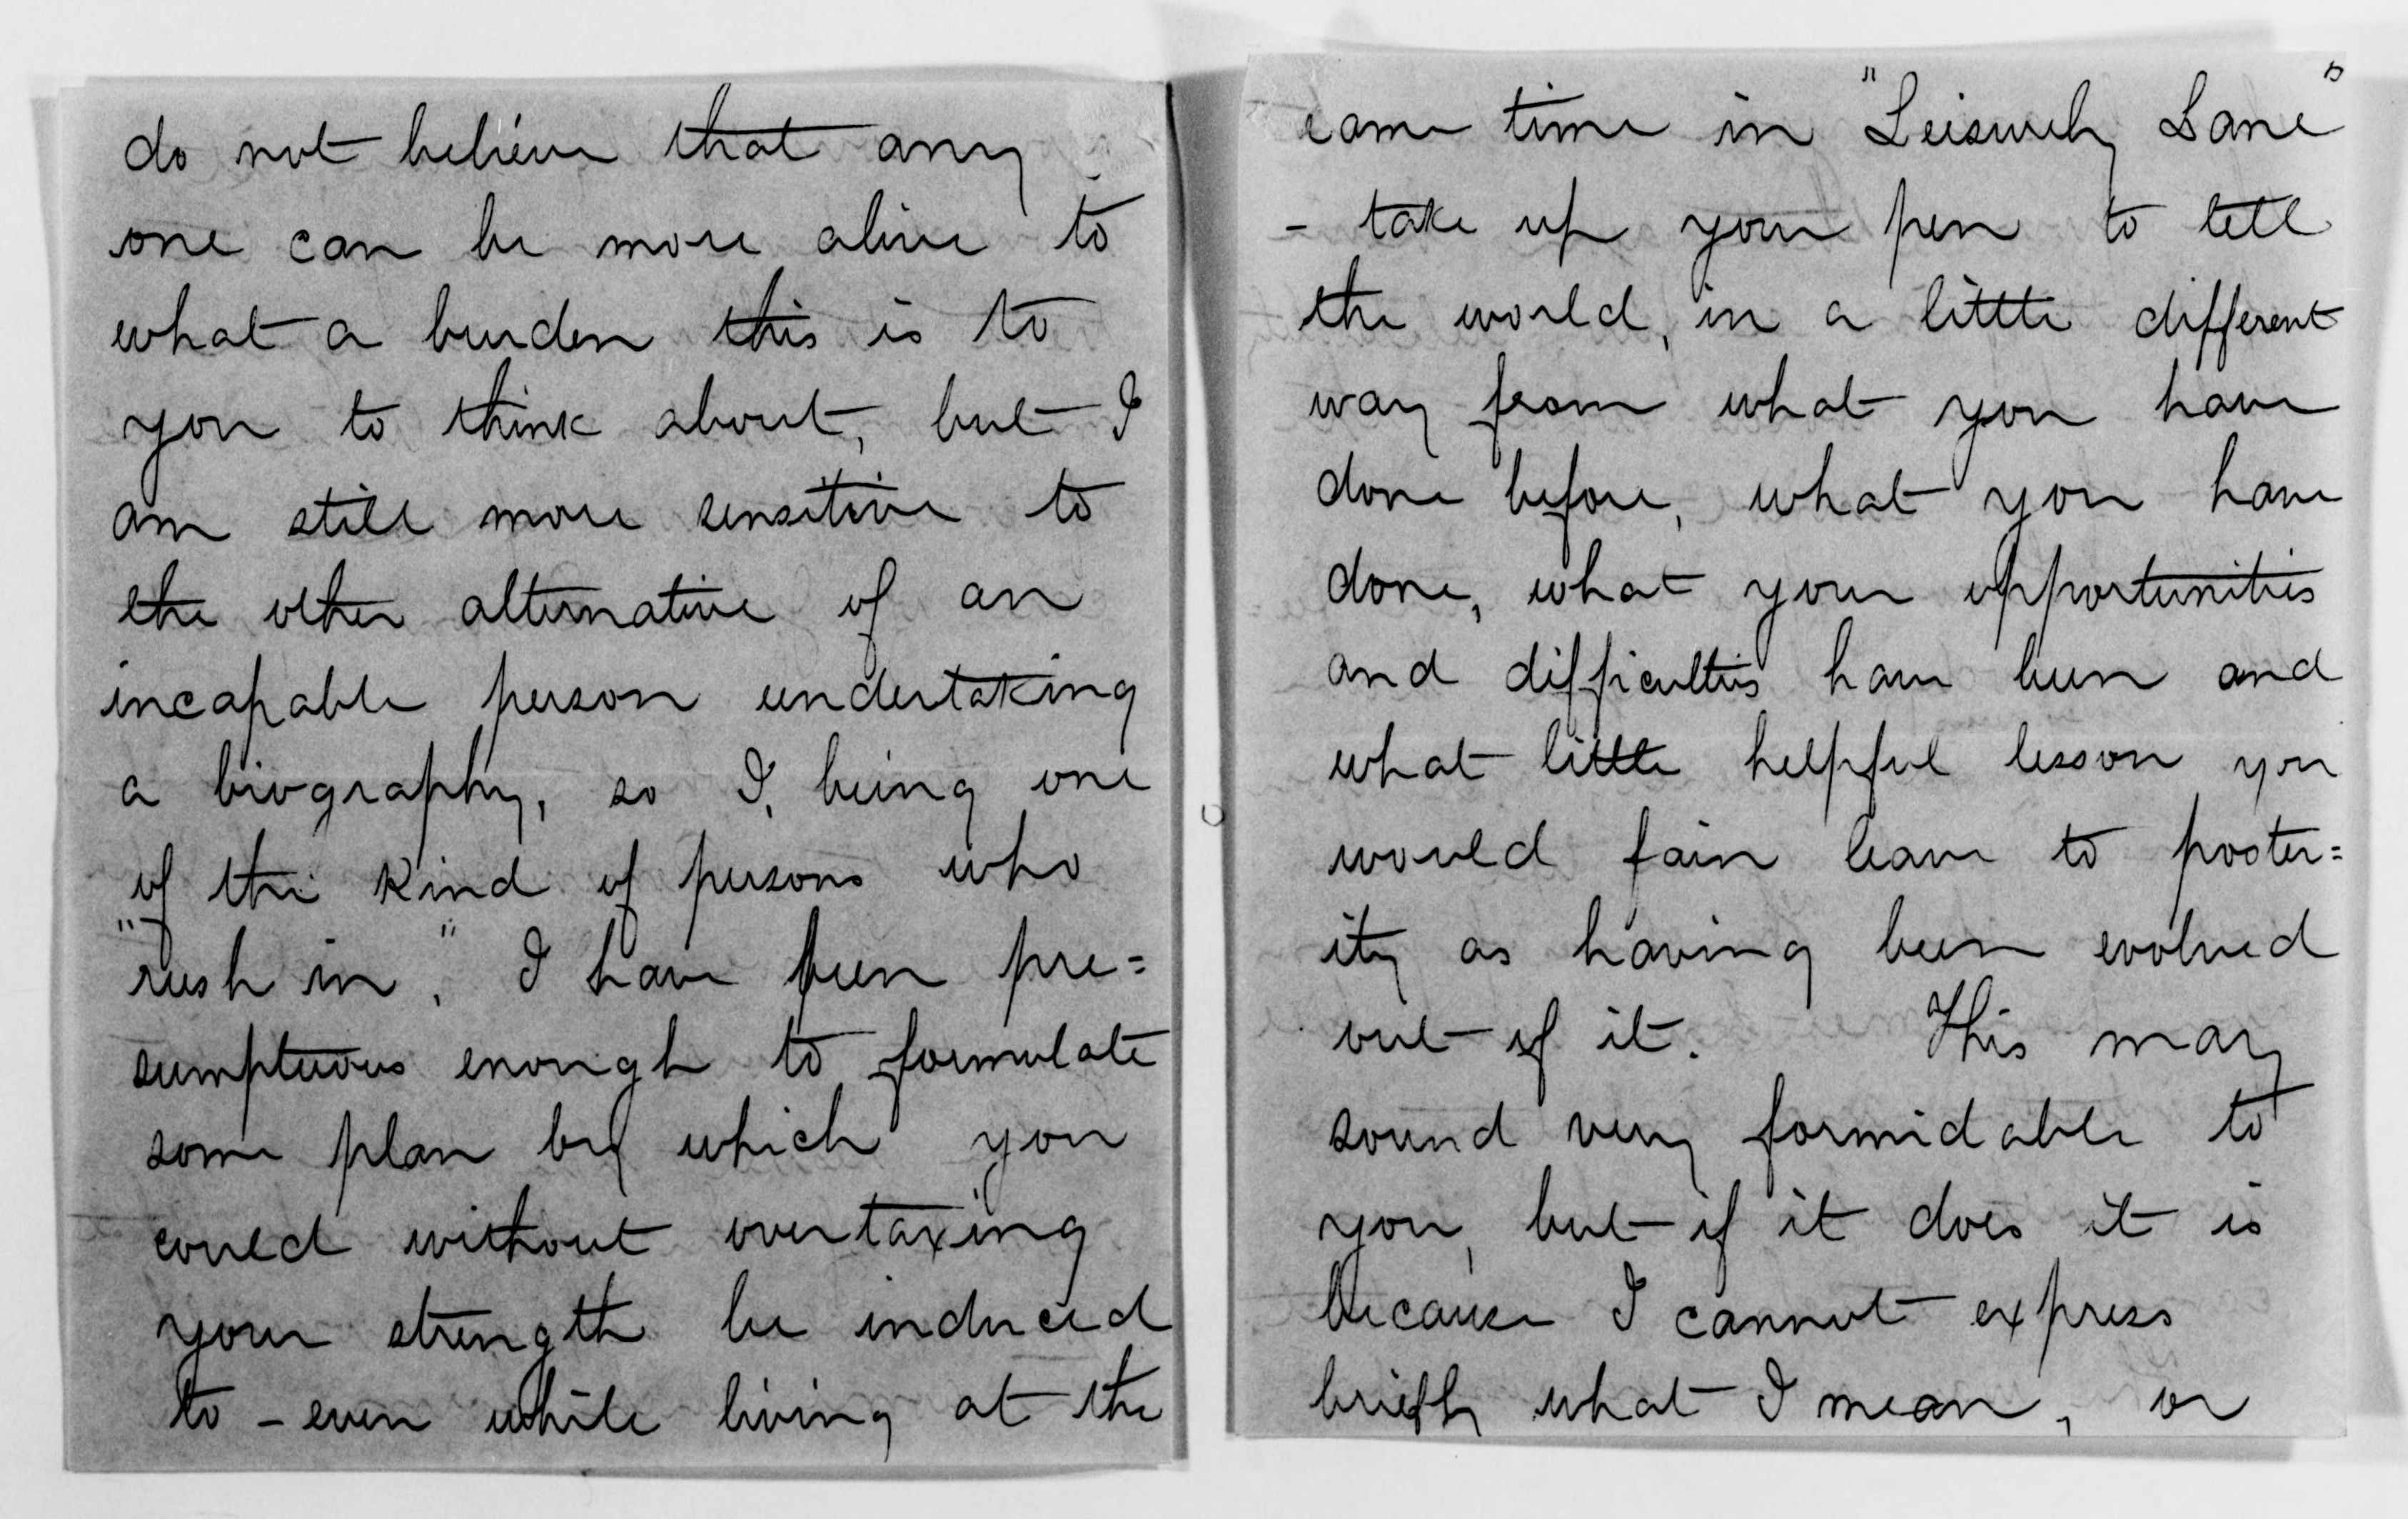 do not believe that any
one can be more alive to
what a burden this is to
you to think about, but I
am still more sensitive to
the other alternative of an
incapable person undertaking
a biography, so I, being one
of the kind of persons who
"rush in", I have been pre=
sumptuous enough to formulate
some plan by which you
could without overtaxing
your strength be induced
to - even while living at the
same time in "Leisurely Lane"
- take up your pen to tell
the world, in a little different
way from what you have
done before, what you have
done, what your opportunities
and difficulties have been and
what little helpful lesson you
would fain leave to poster=
ity as having been evolved
out of it. This may
sound very formidable to
you, but if it does it is
because I cannot express
briefly what I mean, or